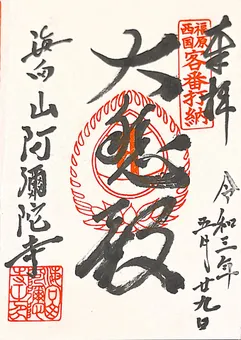 奉拝
令和三年
五月廿九日
福原
西国
客番打納
大悲殿
山阿彌陀寺